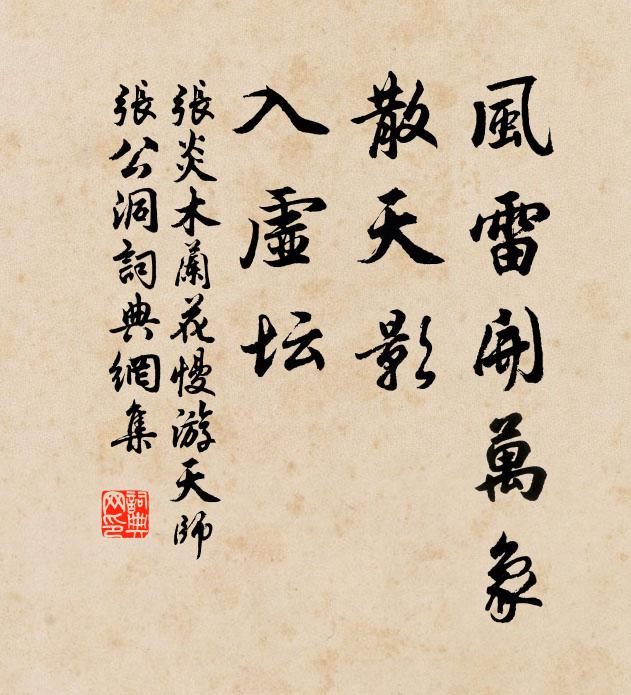 風雷開萬象
散天影
入虛坛
張炎木蘭花慢游天師
張公洞詞典網集
詞典网印